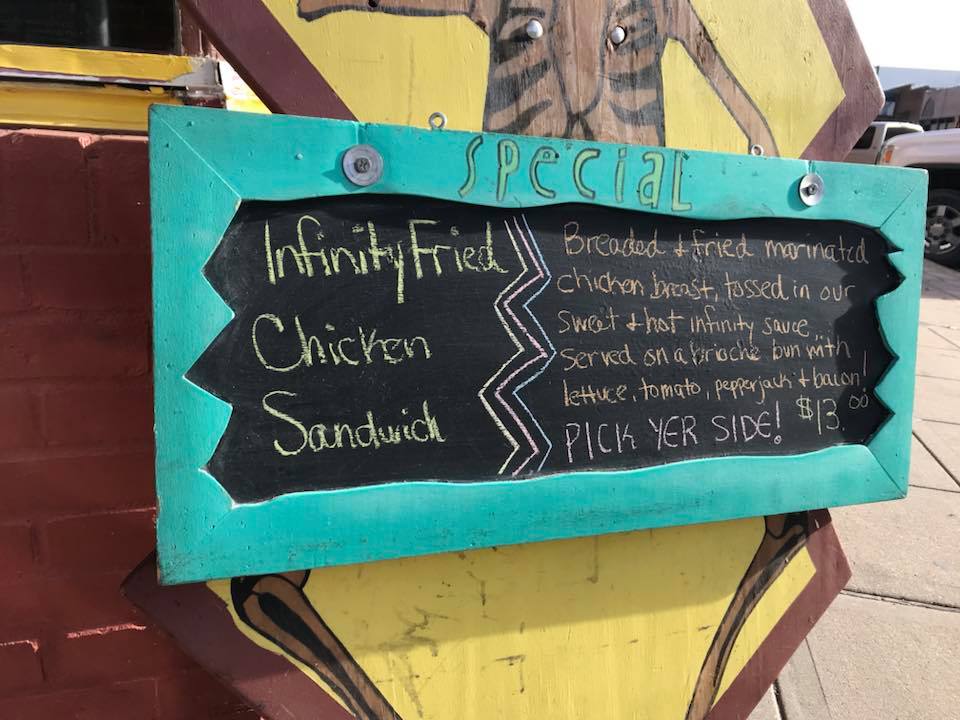 Special
Infinity Fried
Chicken
Sandwich
Breaded & fried marinated
chicken breast, tossed in our
sweet & hot infinity sauce,
served on a brioche bun with
lettuce, tomato, pepperjack & bacon!
PICK YER SIDE! $13.00